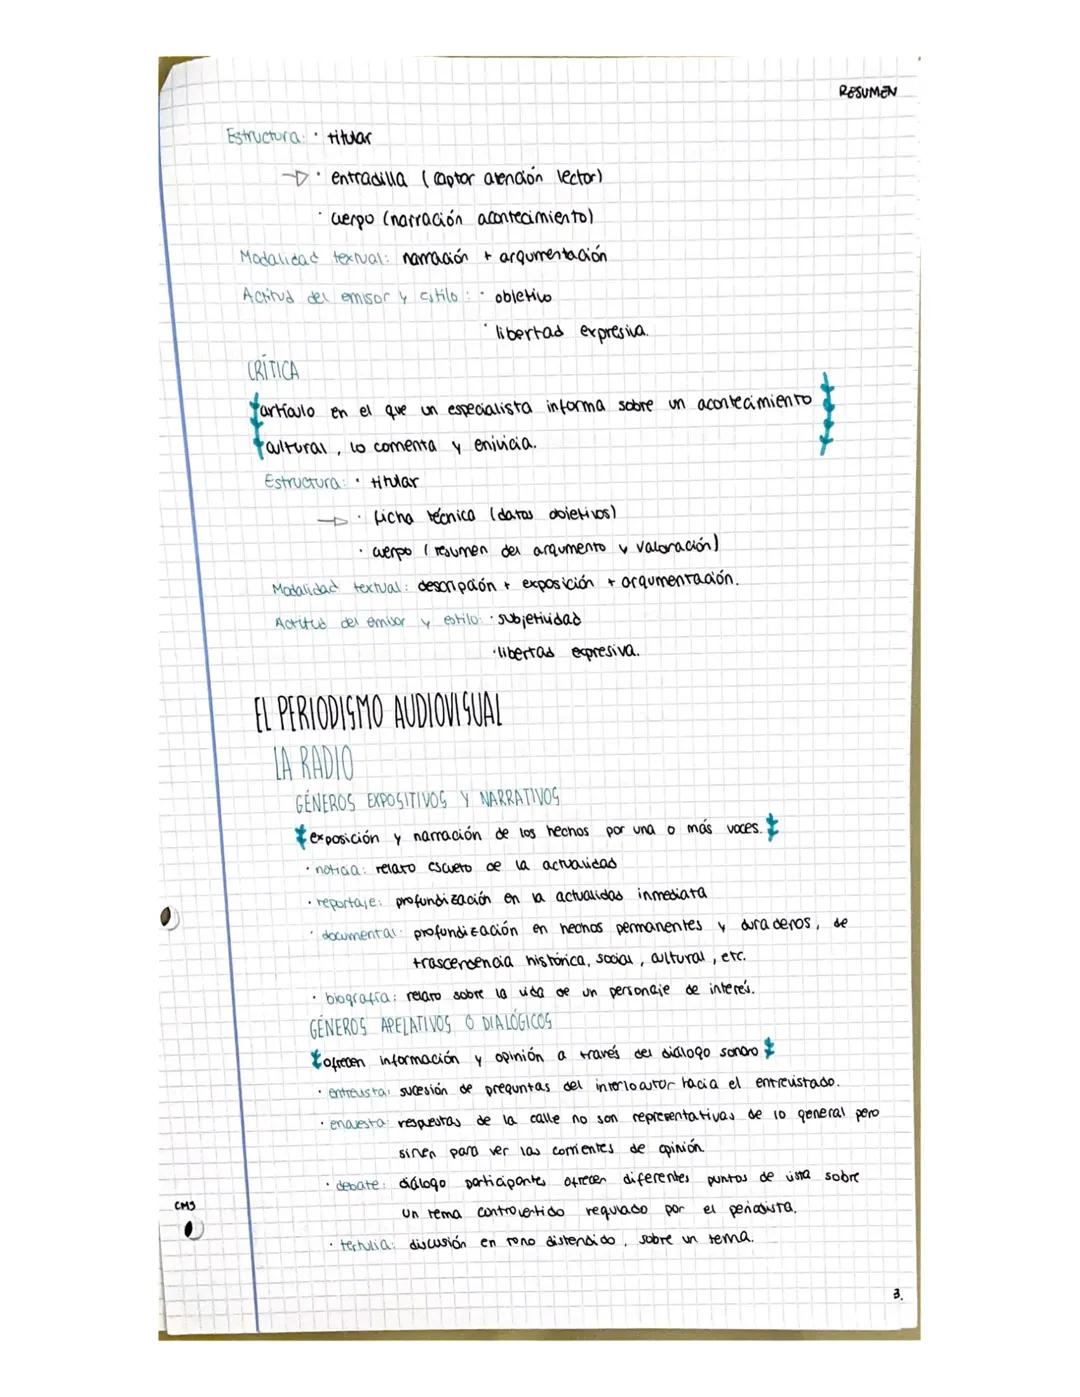 RESUMEN
Estructura: · titular
· entradilla (captar atención lector)
· cuerpo (narración acontecimiento)
Modalidad textual: narración + argumentación
Actitud del emisor y estilo: · objetivo
· libertad expresiva.
CRÍTICA
artículo en el que un especialista informa sobre un acontecimiento
cultural, lo comenta y enjuicia.
Estructura: · titular
· ficha técnica (datos objetivos)
· cuerpo (resumen del argumento y valoración)
Modalidad textual: descripción + exposición + argumentación.
Actitud del emisor y estilo: · subjetividad
· libertad expresiva.
EL PERIODISMO AUDIOVISUAL
LA RADIO
GÉNEROS EXPOSITIVOS Y NARRATIVOS
exposición y narración de los hechos por una o más voces.
· noticia: relato escueto de la actualidad
· reportaje: profundización en la actualidad inmediata
· documental: profundización en hechos permanentes y duraderos, de
trascendencia histórica, social, cultural, etc.
· biografía: relato sobre la vida de un personaje de interés.
GÉNEROS APELATIVOS O DIALÓGICOS
ofrecen información y opinión a través del diálogo sonoro
· entrevista: sucesión de preguntas del interlocutor hacia el entrevistado.
· encuesta: respuestas de la calle no son representativas de lo general pero
sirven para ver las corrientes de opinión.
· debate: diálogo participantes ofrecen diferentes puntos de vista sobre
un tema controvertido regulado por el periodista.
· tertulia: discusión en tono distendido, sobre un tema.
CMS
3.